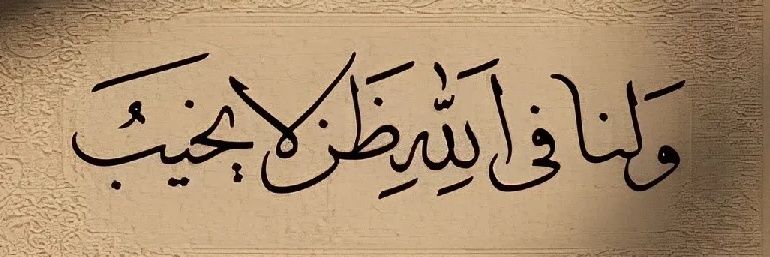 وَلنا فى اَللّٰهِ ظَن لا يخيَبُ